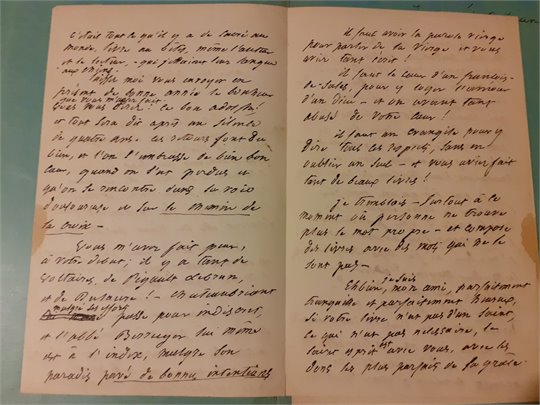 C'était tout ce qu'il y a de sacré au
monde, livre ou bêtes, même l'auteur
et le lecteur, - que j'aimais leur langue
aux chiens.
Laissez moi vous envoyer en
présent de bonne année le bonheur
que vous m'avez fait
! ce bon
et tout sera dit après un silence
de quatre ans. Ces retours font du
bien, et l'on s'embrasse de bien bon
cœur, quand on s'est perdus et
qu'on se rencontre dans la voie
douloureuse et sur le chemin de
la croix -
Vous m'avez fait peur,
à votre début; il y a tant de
Voltaires, de Pigault Lebrun,
et de ! - Chateaubriant
malgré ses efforts
passe pour indiscret,
et l'abbé lui même
est à l'index, malgré son
paradis pavé de bonnes intentions
il faut avoir la parole vierge
pour parler de la vierge et vous
avez tant écrit!
il faut le cœur d'un françois-
de-Sales, pour y loger l'amour
d'un Dieu - et on avait tant
abusé de votre cœur!
il faut un évangile pour y
dire tous les sans en
oublier un seul - et vous aviez fait
tant de beaux livres!
je tremblais - surtout à ce
moment où personne ne trouve
plus le mot propre - et compose
des livres avec des mots qui ne le
sont pas -
Eh bien, je suis mon ami, parfaitement
tranquille et parfaitement heureux,
si votre livre n'est pas d'un saint,
ce qui n'est pas nécessaire, le
saint esprit est avec vous, avec les
dons les plus parfaits de la grâce.